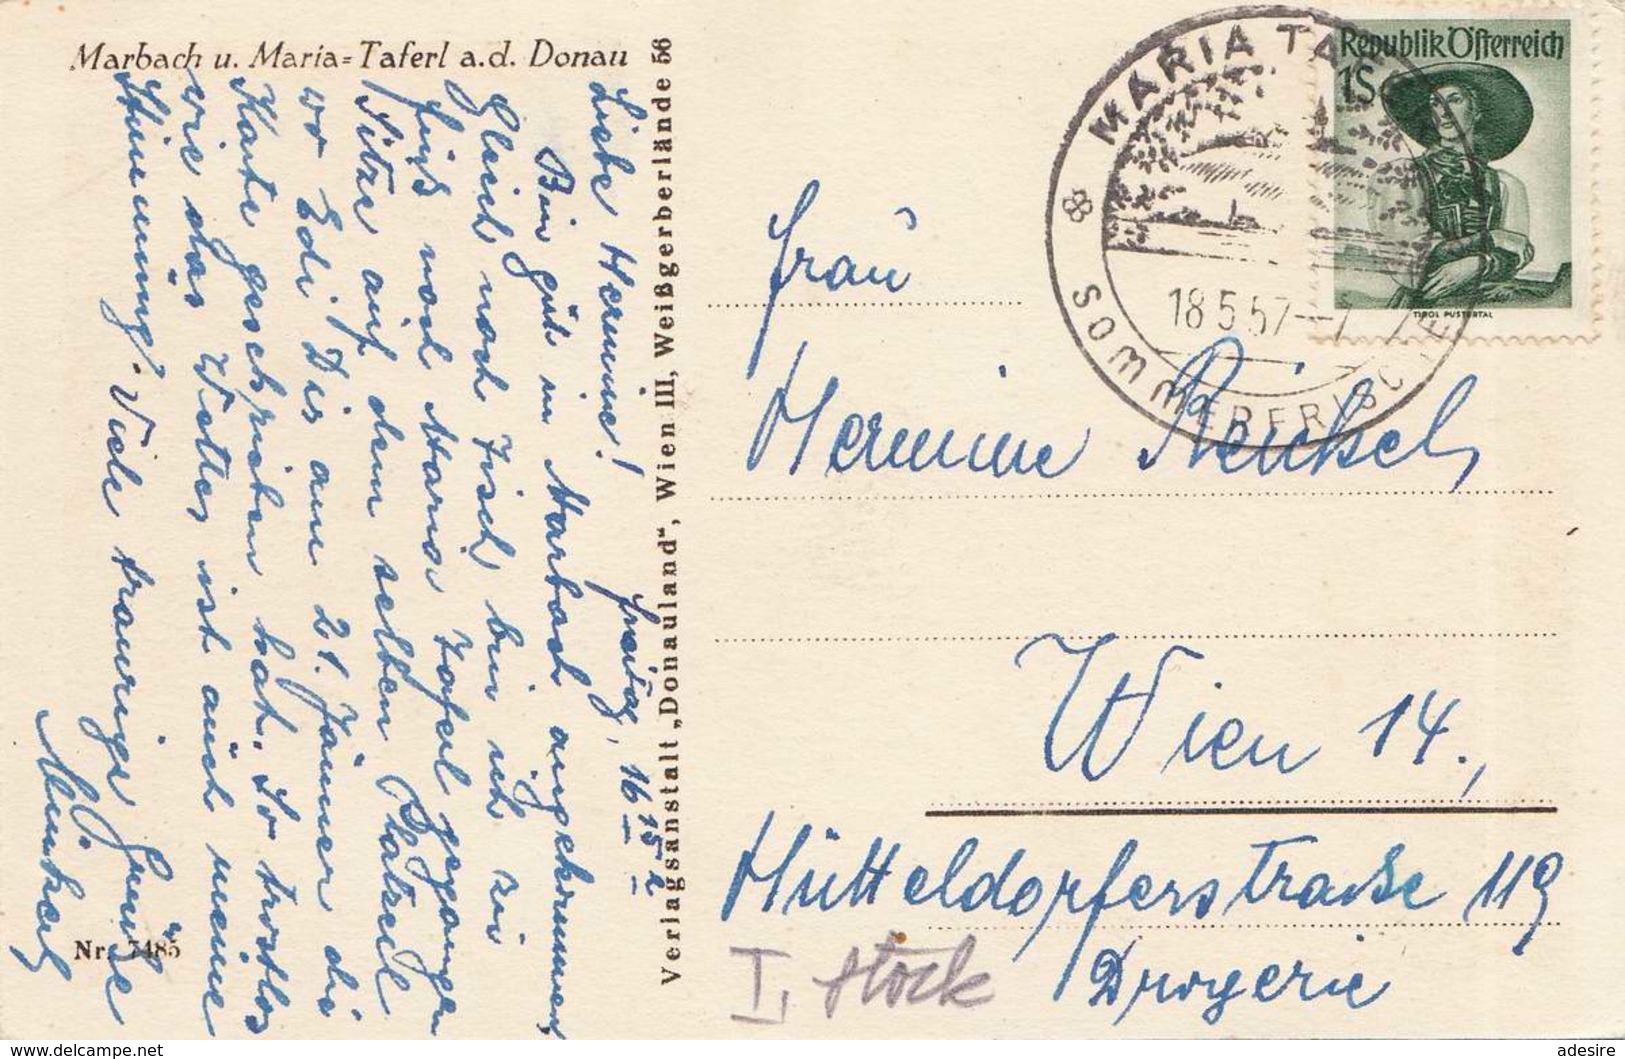 Marbach u. Maria=Taferl a.d. Donau
Freitag, 16 15 h
Liebe Hermine!
Bin gut in Marbach angekommen,
gleich nach Tisch, bin ich zu
Fuß nach Maria Taferl gegangen
Sitze auf dem selben Platzerl
wo Edi Dir am 21. Jänner die
Karte geschrieben hat. So trostlos
wie das Wetter ist auch meine
Stimmung. Viele traurige Grüße
Nr. 7485
Verlagsanstalt „Donauland“, Wien III, Weißgerberlände 56
MARIA TAF
SOMMERFRISCHE
18.5.57
Republik Österreich
1S
TIROL PUSTERTAL
Frau
Hermine
Wien 14.,
Hütteldorferstraße 119
Drogerie
I. Stock
adesire
www.delcampe.net